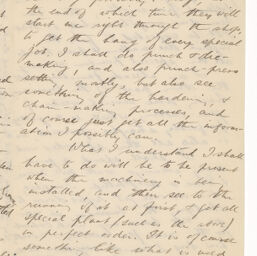 the end of which time they will
start me right through the shops,
to get the hang of every special
job. I shall do punch & die-
making, and also punch-press
setting mostly, but also see
something of the hardening, &
chain-making processes, and
of course just get all the inform-
ation I possibly can.
What I understand I shall
have to do will be to be present
when the machinery is being
installed, and then see to the
running of it at first, & get all
special plant (such as the above)
in perfect order. It is of course
something like what is used